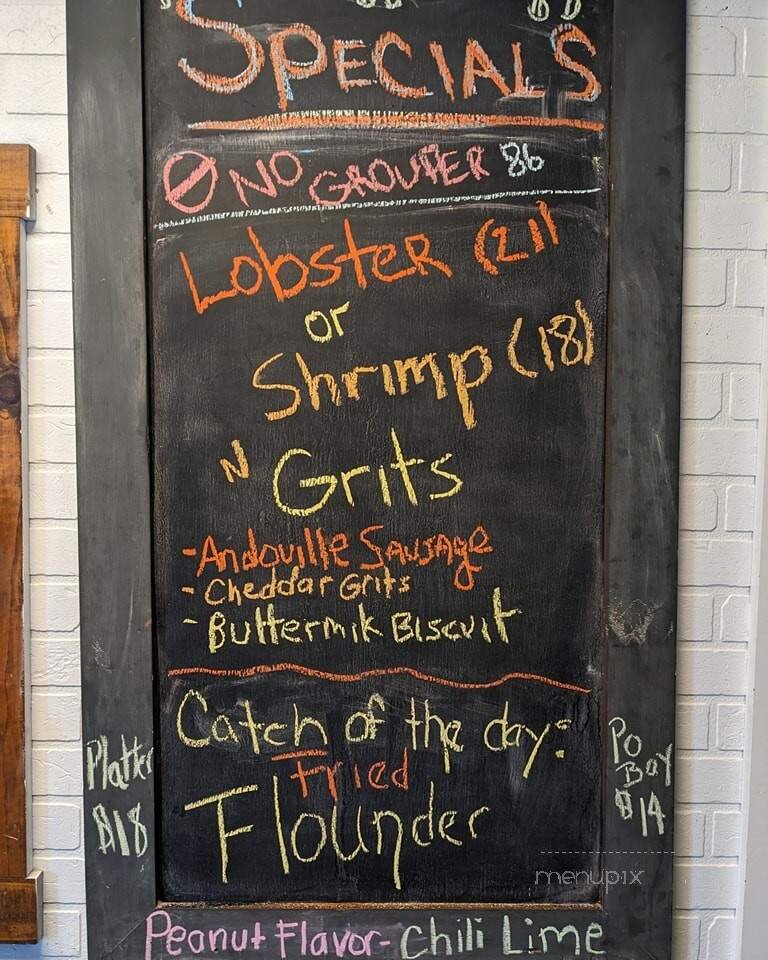 SPECIALS
NO GROUPER 86
Lobster (21)
or
Shrimp (18)
N
Grits
- Andouille Sausage
- Cheddar Grits
- Buttermik Biscuit
Catch of the day:
Fried
Flounder
Platter
$18
Po
Boy
$14
menupix
Peanut Flavor - Chili Lime